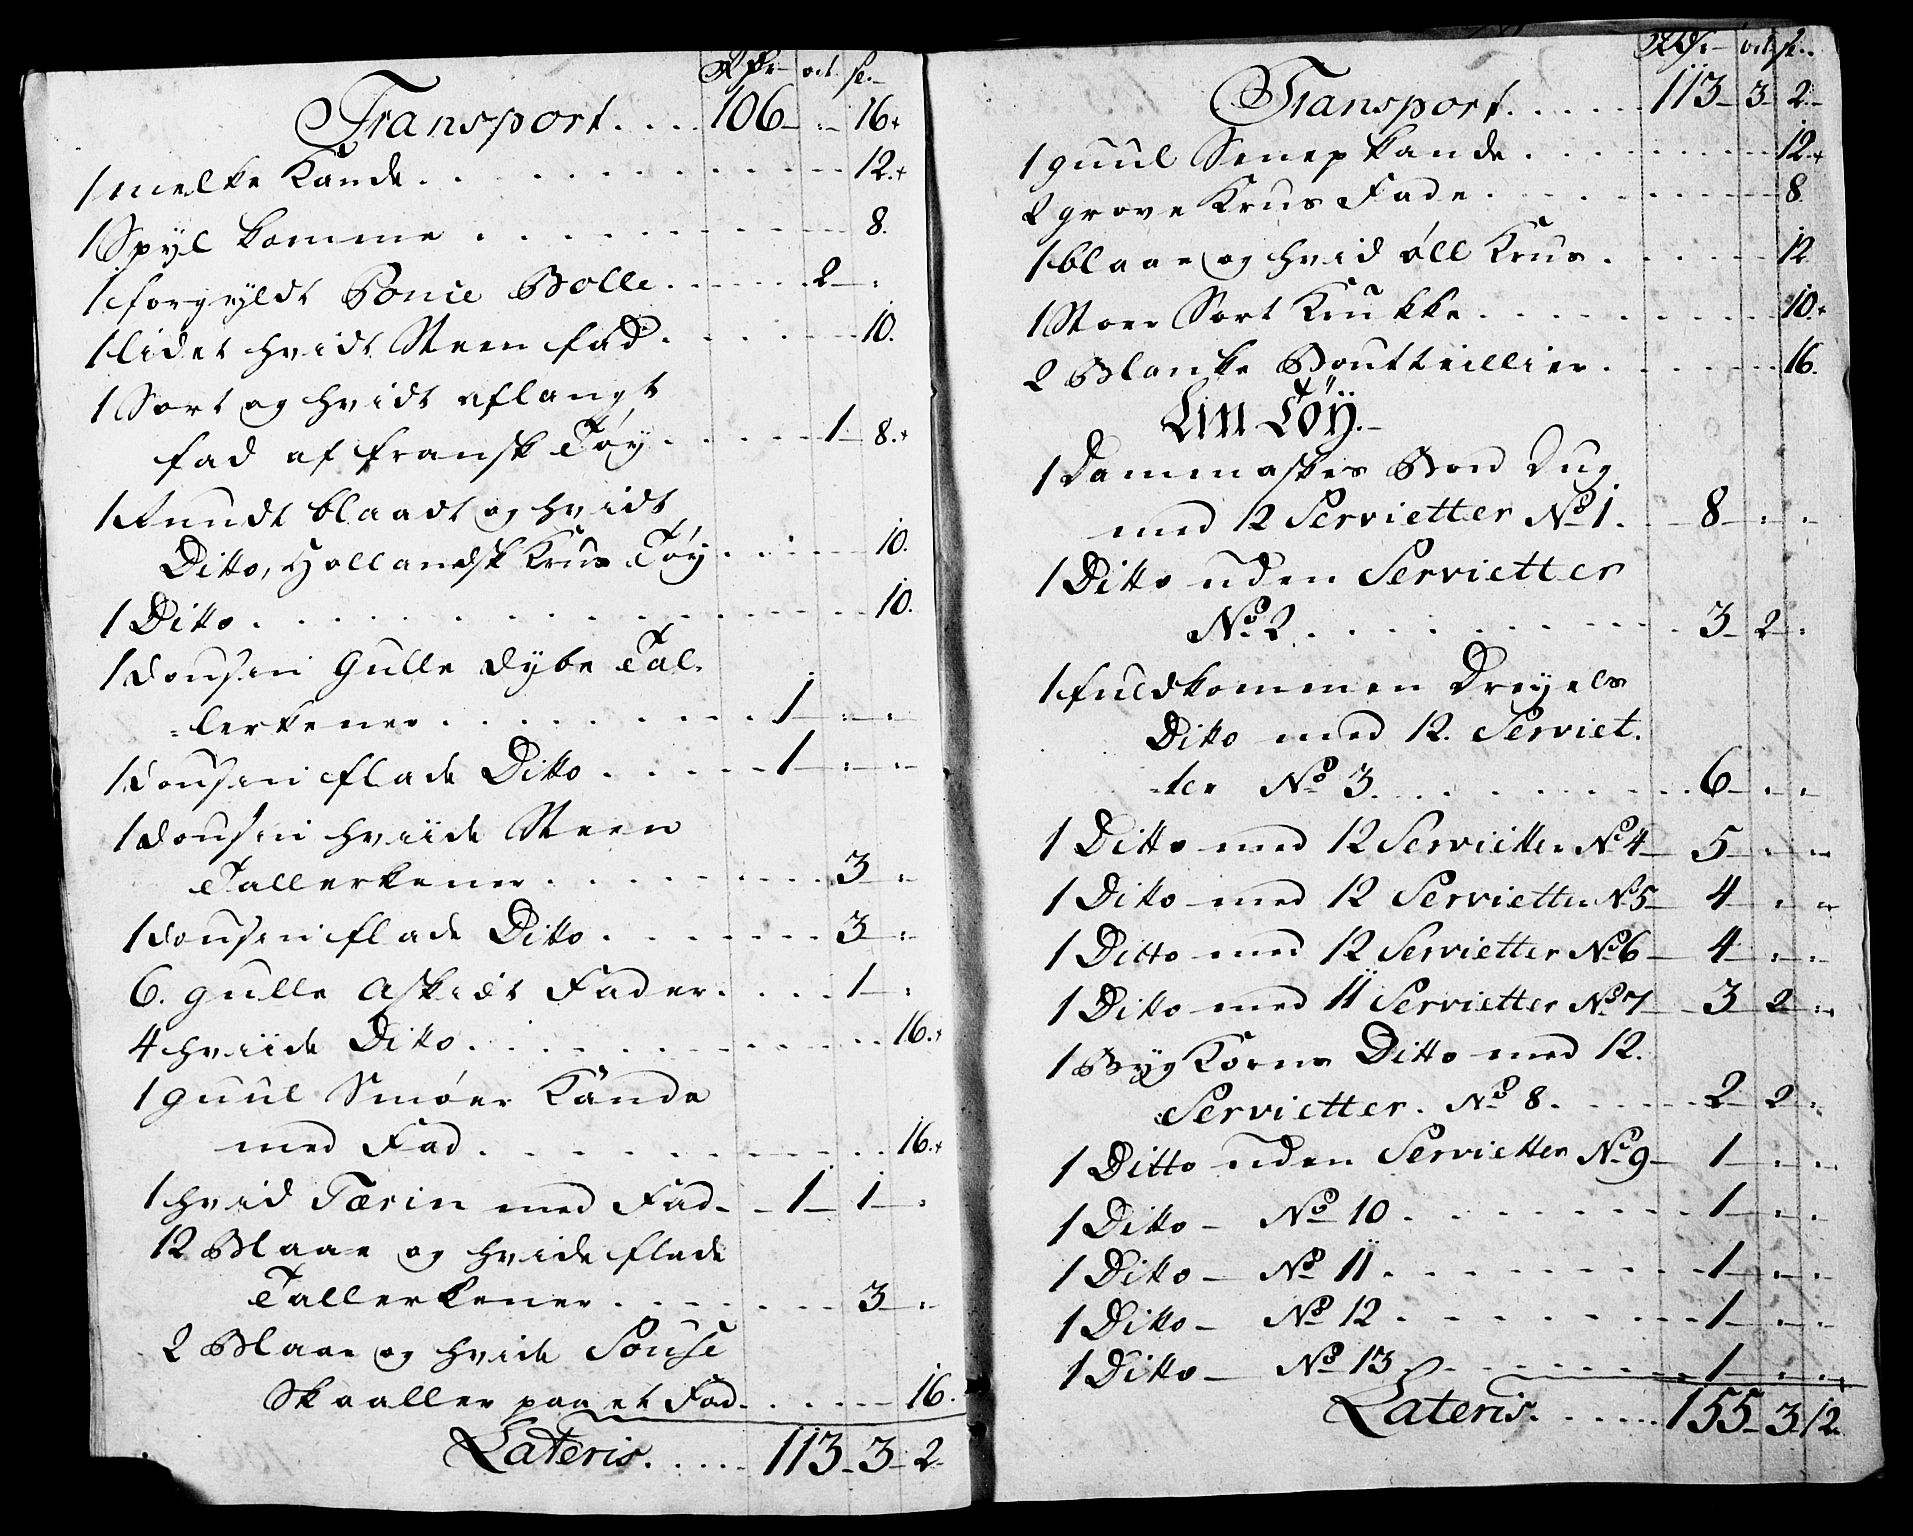 Rdr. ort. sk.
Transport.... 106 - : - 16.
1 melke Kande. . . . 12.
1 Spyl komme . . . . 8.
1 forgyldt Ponce Bolle. . . . 2 - :
1 lidet hvidt Steen fad. . . . 10.
1 Sort og hvidt aflangt
fad af fransk Tøy. . . . 1 - 8.
1 Rundt blaadt og hvidt
Ditto, Hollandsk Krus Tøy. . . . 10.
1 Ditto. . . . 10.
1 dousin Gulle dybe Tal-
=lerkener. . . . 1 - : - :
1 dousin flade Ditto. . . . 1 - : - :
1 dousin hviide Steen
Tallerkener. . . . 3 - :
1 dousin flade Ditto. . . . 3 - :
6. gulle Askedt Fader. . . . 1 - :
4 hviide Ditto. . . . 16.
1 guul Smøer Kande
med Fad. . . . 16.
1 hvid Tærin med Fad. - 1 - 1 - :
12 Blaae og hvide flade
Tallerkener. . . . 3 - :
2 Blaae og hvide Souse
Skaaller paa et Fad. . . . 16.
Lateris. . . . 113 - 3 - 2
Rdr. ort. sk.
Transport. . . . 113 - 3 - 2 -
1 guul Senep kande. . . . 12.
2 grove Krus Fade. . . . 8
1 blaae og hvid øll Krus. . . . 12
1 Stoer Sort Krukke. . . . 10.
2 Blanke Boutteillier. . . . 16.
Lin Töÿ.
1 Dammaskes Bord Dug
med 12 Servietter No 1. - 8 - : - :
1 Ditto uden Servietter
No. 2. . . . 3 - 2 - :
1 fuldkommen Dreyels
Ditto med 12. Serviet.
=ter No 3. . . . 6 - : - :
1 Ditto med 12 Servietter No 4 - 5 - : - :
1 Ditto med 12 Servietter No 5 - 4 - : - :
1 Ditto med 12 Servietter No 6 - 4 - : - :
1 Ditto med 11 Servietter No 7 - 3 - 2 - :
1 Byg Korns Ditto med 12.
Servietter. No 8. . . . 2 - 2 - :
1 Ditto uden Servietter No 9 - 1 - : - :
1 Ditto - No 10. . . . 1 - : - :
1 Ditto - No 11. . . . 1 - : - :
1 Ditto - No 12. . . . 1 - : - :
1 Ditto - No 13. . . . 1 - : - :
Lateris. . . . 155 - 3 - 12.